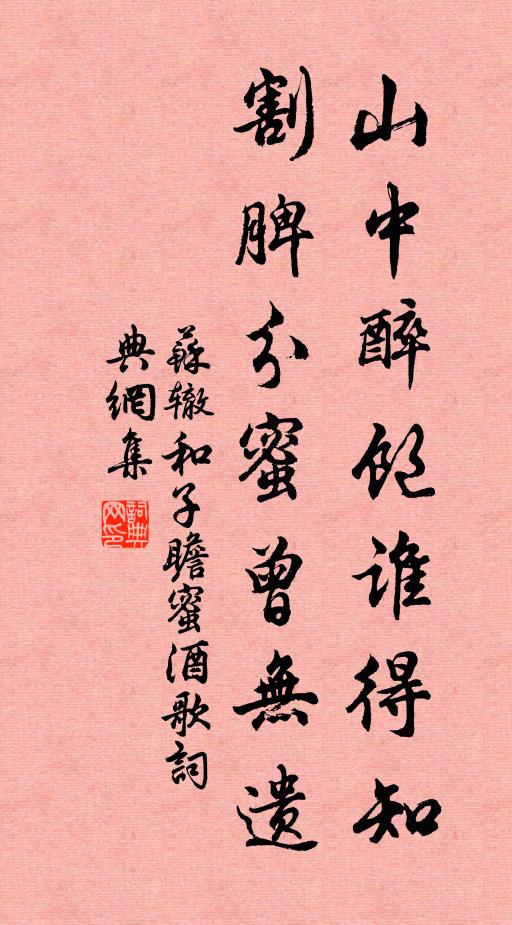 山中醉饱谁得知
割脾分蜜曾無遗
蘇辙和子瞻蜜酒歌詞
典網集
詞典网印